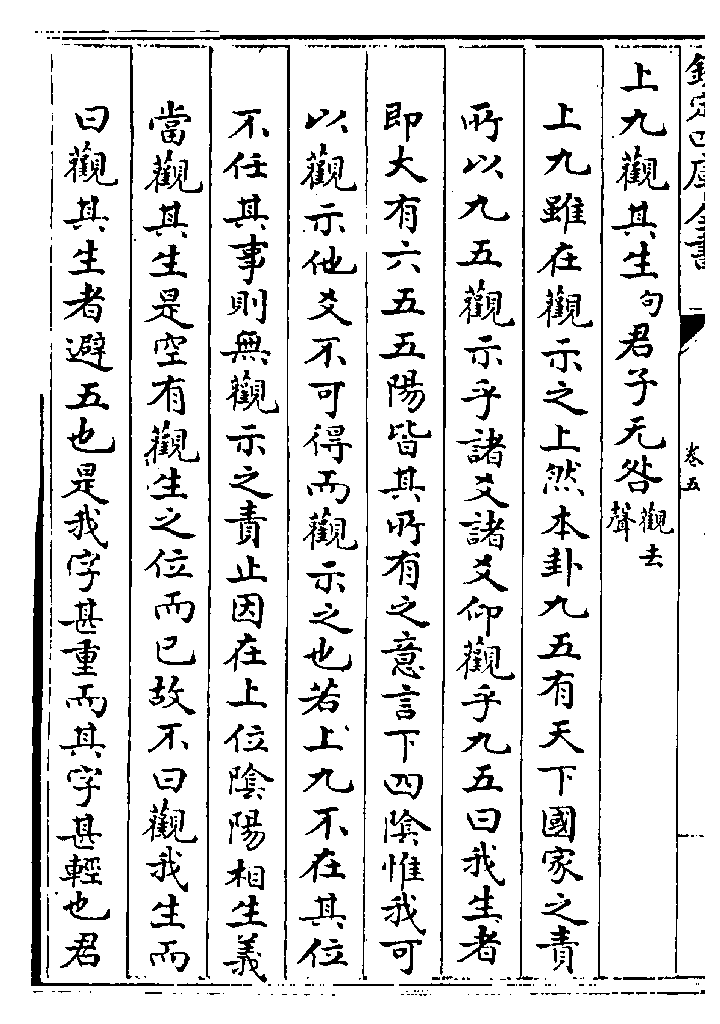 欽定四庫全書
卷五
上九觀其生句君子无咎觀去聲
上九雖在觀示之上然本卦九五有天下國家之責
所以九五觀示乎諸爻諸爻仰觀乎九五曰我生者
即大有六五五陽皆其所有之意言下四陰惟我可
以觀示他爻不可得而觀示之也若上九不在其位
不任其事則無觀示之責止因在上位陰陽相生義
當觀其生是空有觀生之位而已故不曰觀我生而
曰觀其生者避五也是我字甚重而其字甚輕也君